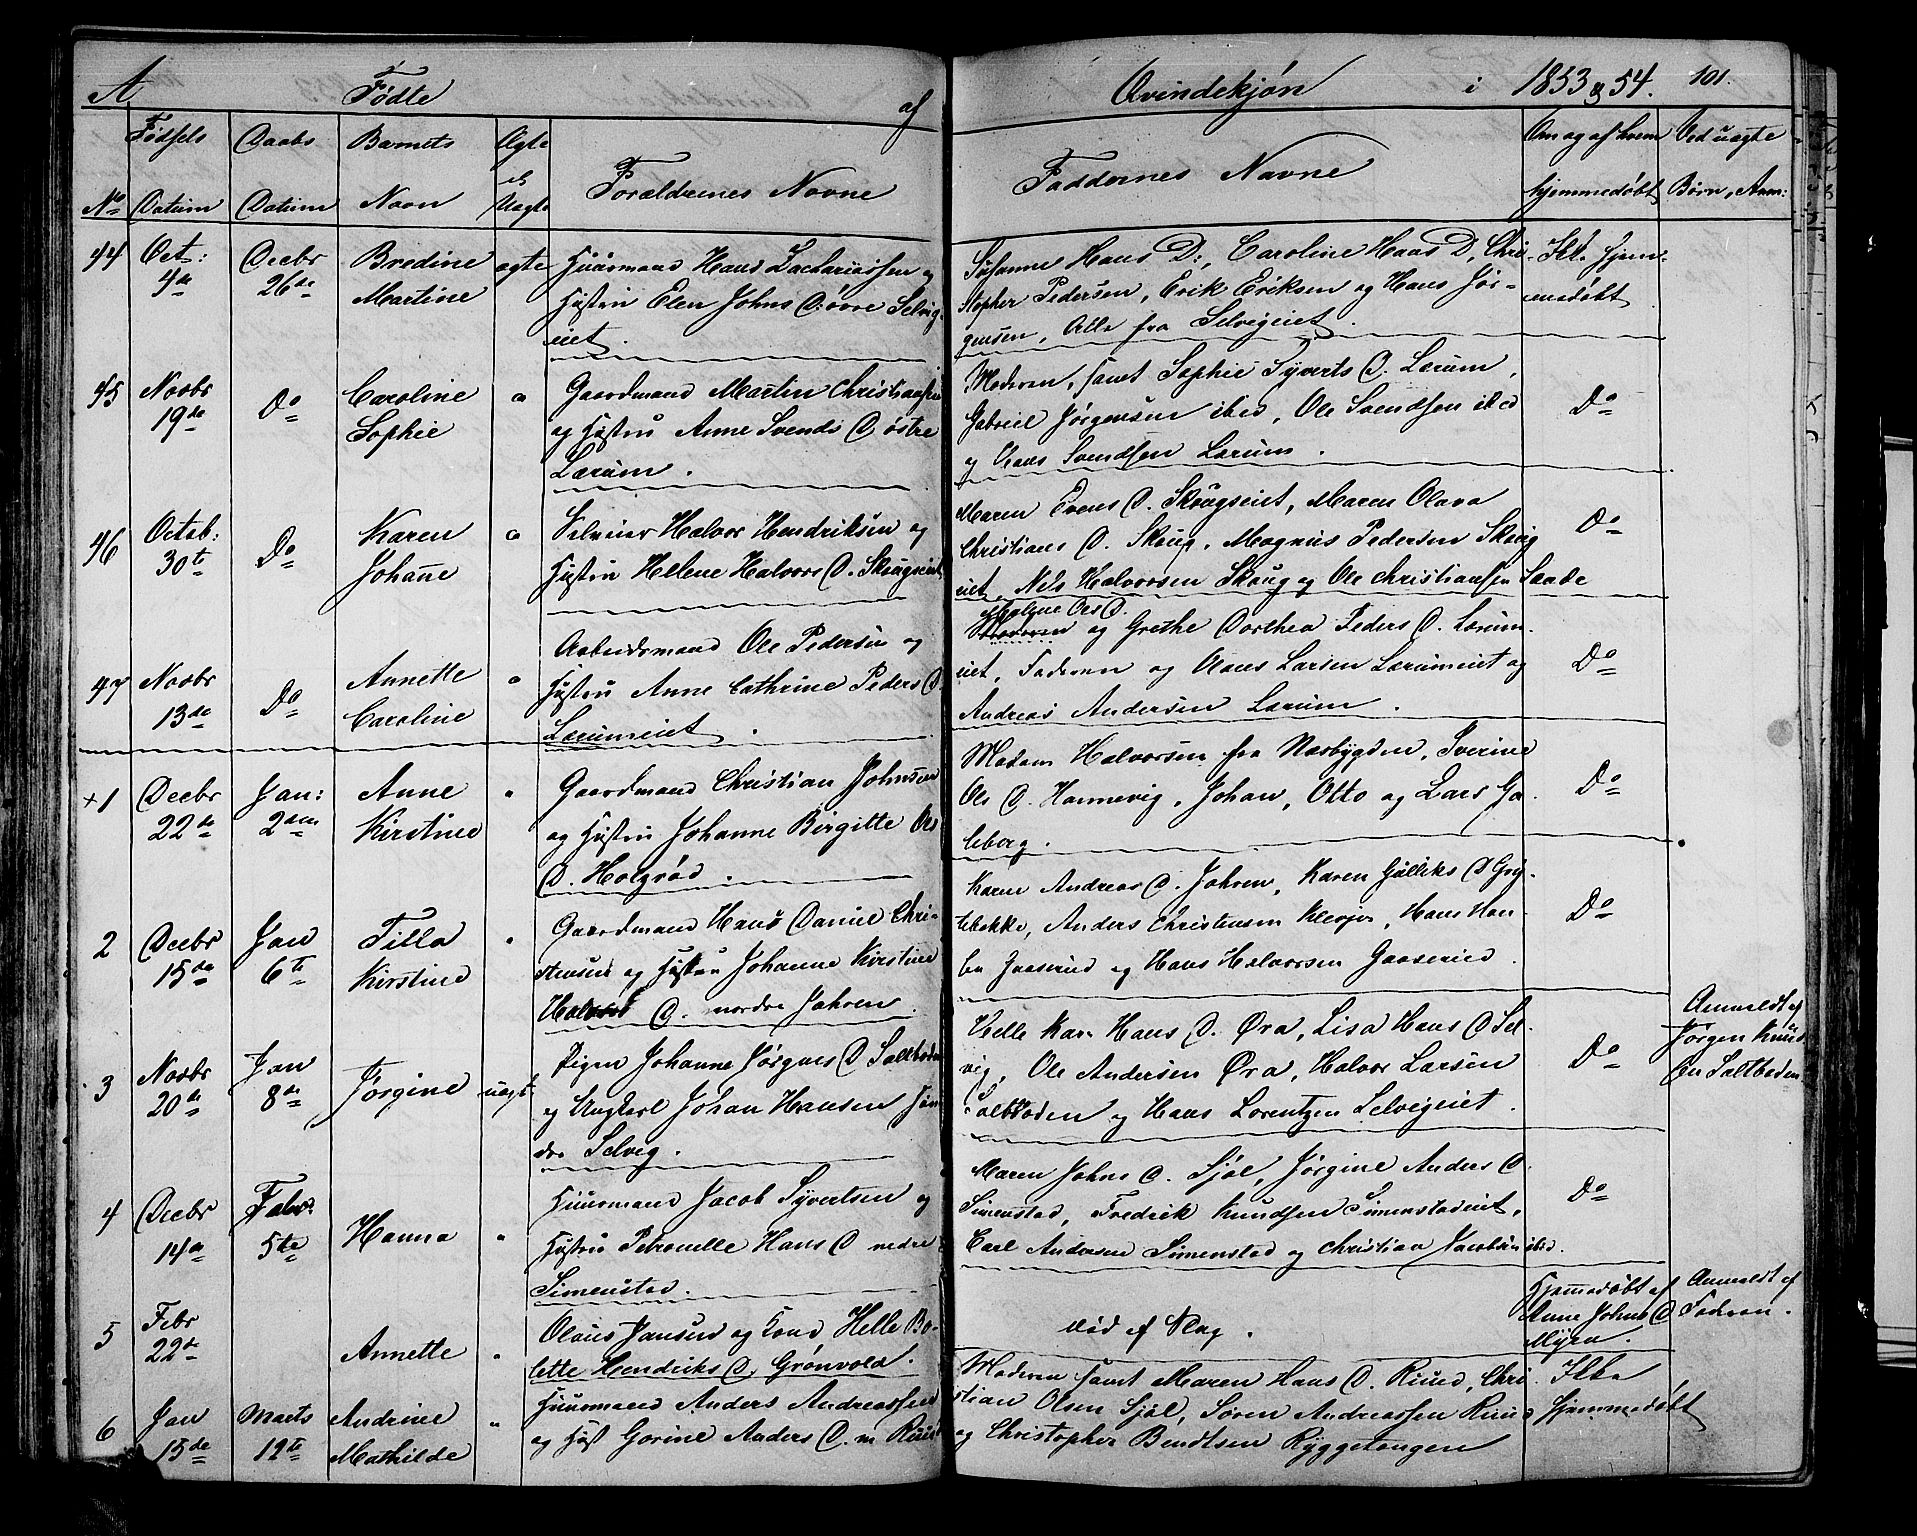 A Fødte af Qvindekjøn i 1853 og 54. 101.
No Fødsels Datum Daabs Datum Barnets Navn Ægte el Uægte Forældrenes Navne Faddernes Navne Om og af hvem hjemmedøbt Ved uægte Børn, Anm:
44 Oct: 4de Decbr 26de Bredine Martine ægte
Huusmand Hans Zachariassen og
Hustru Elen Johns D: øvre Selvig-
eiet.
Susanne Hans D:, Caroline Hans D, Chri-
stopher Pedersen, Erik Eriksen og Hans Jør-
gensen, Alle fra Selvigeiet.
Ikke hjem-
medøbt
45 Novbr 19de Do Caroline Sophie "
Gaardmand Martin Christiansen
og Hustru Anne Svends D østre
Lærum.
Moderen, samt Sophie Syverts D. Lærum,
Gabriel Jørgensen ibid, Ole Svendsen ibid
og Hans Svendsen Lærum.
Do
46 Octob: 30te Do Karen Johanne "
Selveier Halvor Hendriksen og
Hustru Helene Halvors D. Skougseiet
Maren Evens D. Skougseiet, Maren Olava
Christians D. Skoug, Magnus Pedersen Skoug
eiet, Nils Halvorsen Skoug og Ole Christiansen Saade
Do
47 Novbr 13de Do Annette Caroline "
Arbeidsmand Ole Pedersen og
Hustru Anne Cathrine Peders D.
Lærumeiet.
Maline Ols D.
Moderen og Grethe Dorthea Peders D. Lærum-
eiet, Faderen og Hans Larsen Lærumeiet og
Andreas Andersen Lærum.
Do
+1 Decbr 22de Jan: 2den Anne Kirstine "
Gaardmand Christian Johnsen
og Hustru Johanne Birgitte Ols
D. Holgrød.
Madam Halvorsen fra Næsbygden, Severine
Ols D. Hannevig, Johan, Otto og Lars Ga-
leberg.
Do
2 Decbr 15de Jan 6te Tilla Kirstine "
Gaardmand Hans Daniel Chri-
stensen og Hustru Johanne Kirstine
Halvors D. nordre Jahren.
Karen Andreas D. Jahren, Karen Gulliks D Gry-
tebekke, Anders Christensen Klevjer, Hans Han-
sen Gaaserud og Hans Halvorsen Gaaserud.
Do
3 Novbr 20de Jan 8de Jørgine uægte
Pigen Johanne Jørgens D Saltboden
og Ungkarl Johan Hansen Søn-
dre Selvig.
Helle Kar. Hans D. Øra, Lisa Hans D Sel-
vig, Ole Andersen Øra, Halvor Larsen
Saltboden og Hans Lorentzen Selvigeiet.
Do
Anmeldt af
Jørgen Knud-
sen Saltboden
4 Decbr 14de Febr. 5te Hanna "
Huusmand Jacob Syvertsen og
Hustru Petronelle Hans D nedre
Simenstad.
Maren Johns D. Sjøl, Jørgine Anders D.
Simenstad, Fredrik Knudsen Simenstadeiet,
Carl Andersen Simenstad og Christian Jacobsen ibid.
Do
5 Febr 22de Annette "
Olaus Jansen og Kone Helle Bo-
lette Hendriks D. Grønvold.
død af Slag.
Hjemmedøbt af
Anne Johns D
Myra.
Anmeldt af
Faderen.
6 Jan 15de Marts 12te Andrine Mathilde "
Huusmand Anders Andreassen
og Hust Gorine Anders D. m Ruud
Moderen samt Maren Hans D. Ruud, Chri-
stian Olsen Sjøl, Søren Andreassen Ruud
og Christopher Bendtsen Ryggetangen
Ikke
Hjemmedøbt